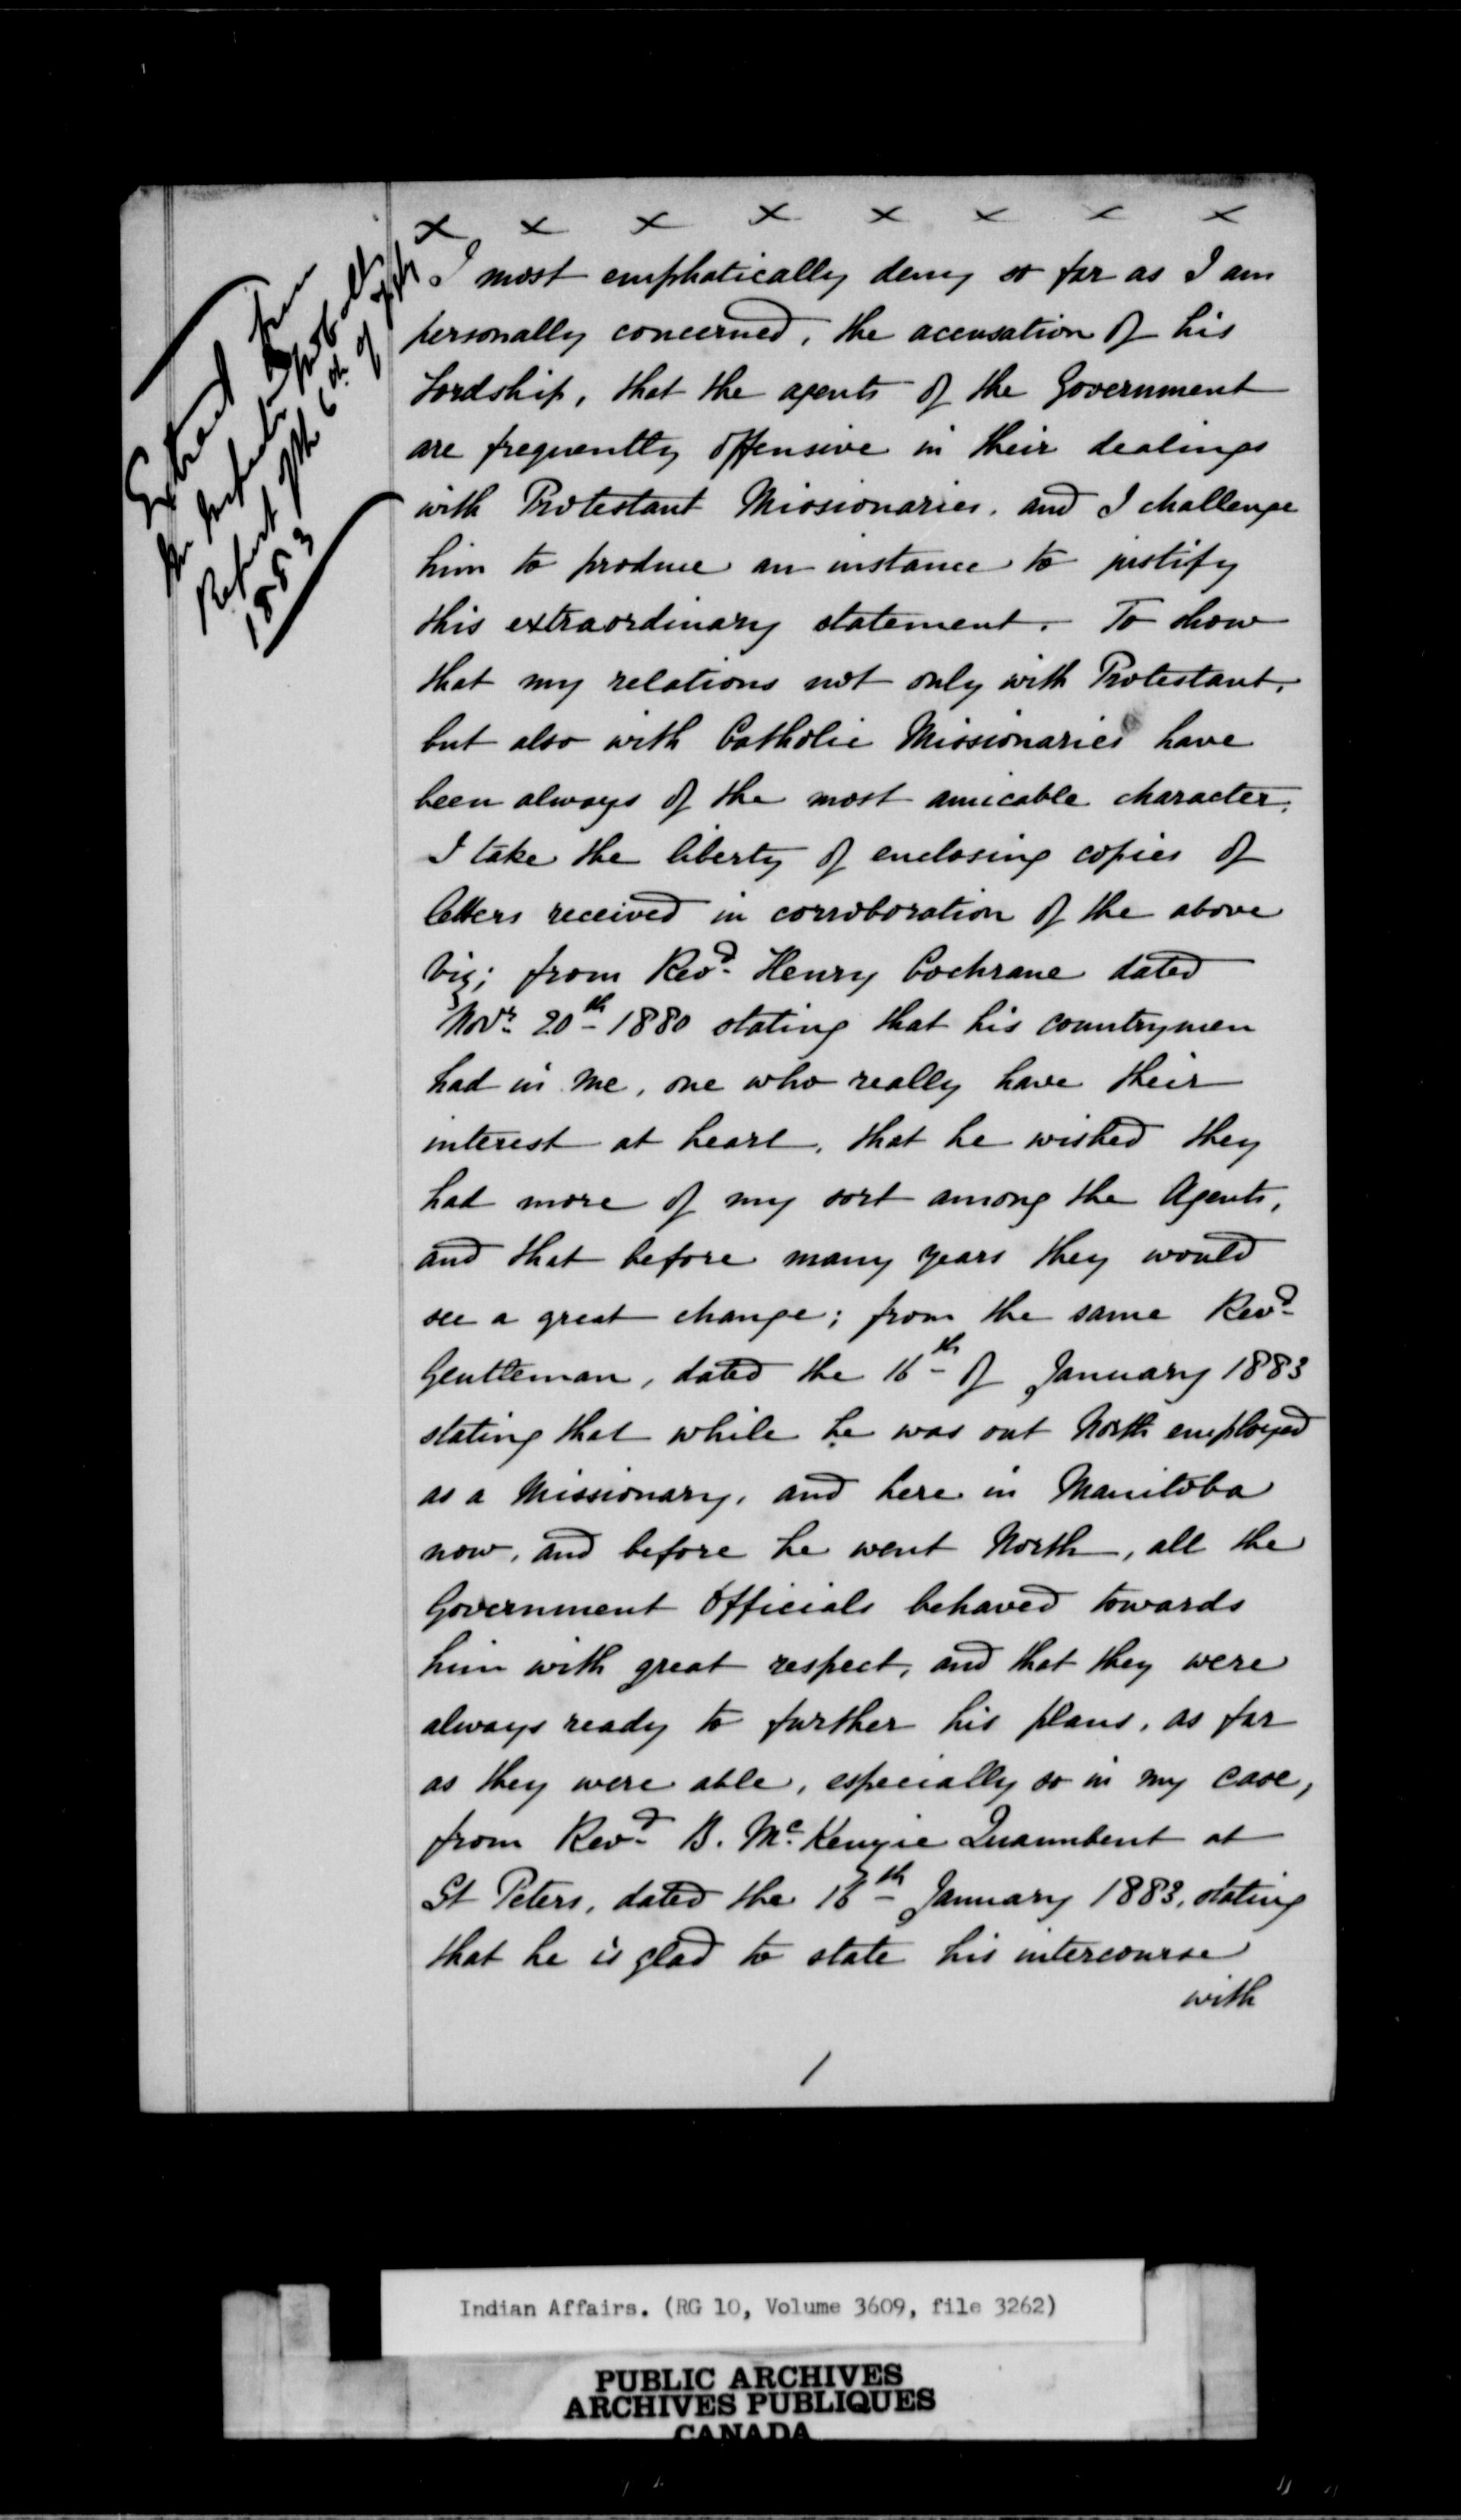 Extract from
Mr Inspector
Report of the 6th of
1883
x x x x x x x x
I most emphatically deny so far as I am
personally concerned, the accusation of his
Lordship, that the agents of the Government
are frequently offensive in their dealings
with Protestant Missionaries, and I challenge
him to produce an instance to justify
this extraordinary statement. To show
that my relations not only with Protestant,
but also with Catholic Missionaries have
been always of the most amicable character.
I take the liberty of enclosing copies of
letters received in corroboration of the above
viz; from Revd. Henry Cochrane dated
Novr. 20th 1880 stating that his countrymen
had in me, one who really have their
interest at heart, that he wished they
had more of my sort among the Agents,
and that before many years they would
see a great change; from the same Revd.
Gentleman, dated the 16th of January 1883
stating that while he was out North employed
as a Missionary, and here in Manitoba
now, and before he went North, all the
Government Officials behaved towards
him with great respect, and that they were
always ready to further his plans, as far
as they were able, especially so in my case,
from Revd. B. McKenzie Incumbent at
St Peters, dated the 16th January 1883, stating
that he is glad to state his intercourse
with
1
Indian Affairs. (RG 10, Volume 3609, file 3262)
PUBLIC ARCHIVES
ARCHIVES PUBLIQUES
CANADA